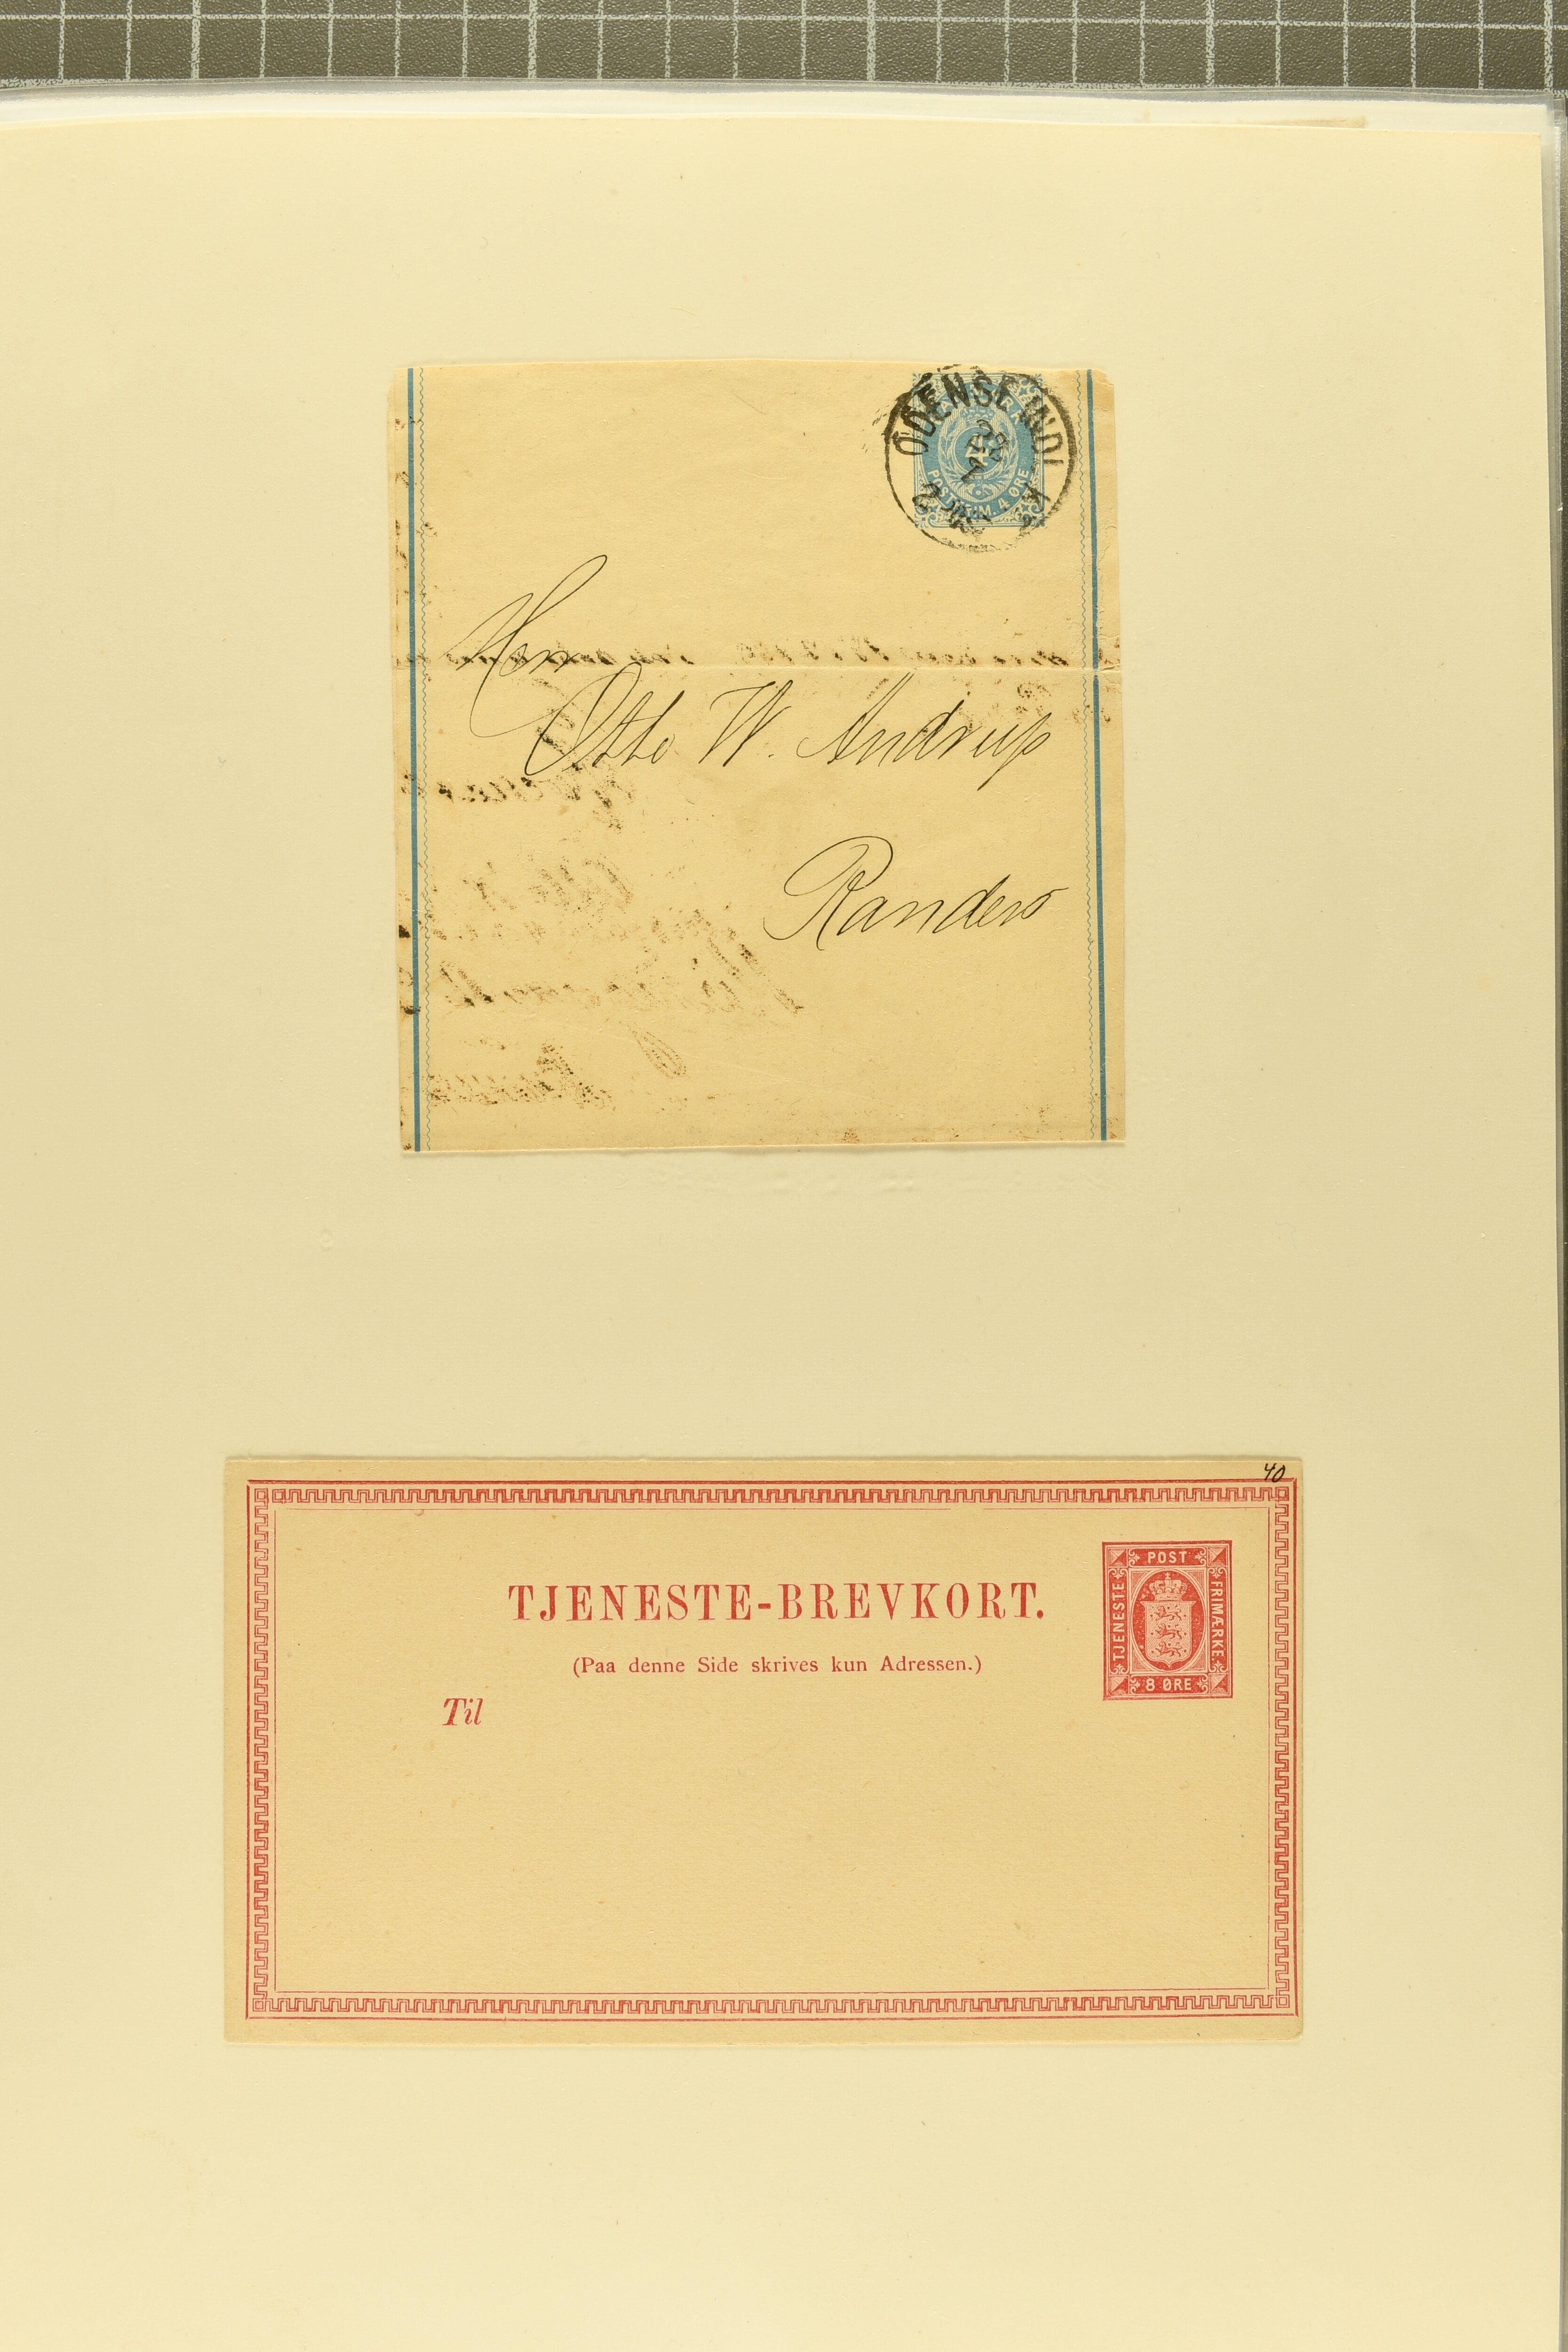 ODENSE INDL
POSTFRIM. 4 ØRE
4
Herrn
Otto W. Andrup
Randers
40
TJENESTE-BREVKORT.
(Paa denne Side skrives kun Adressen.)
Til
POST
TJENESTE
FRIMÆRKE
8 ØRE